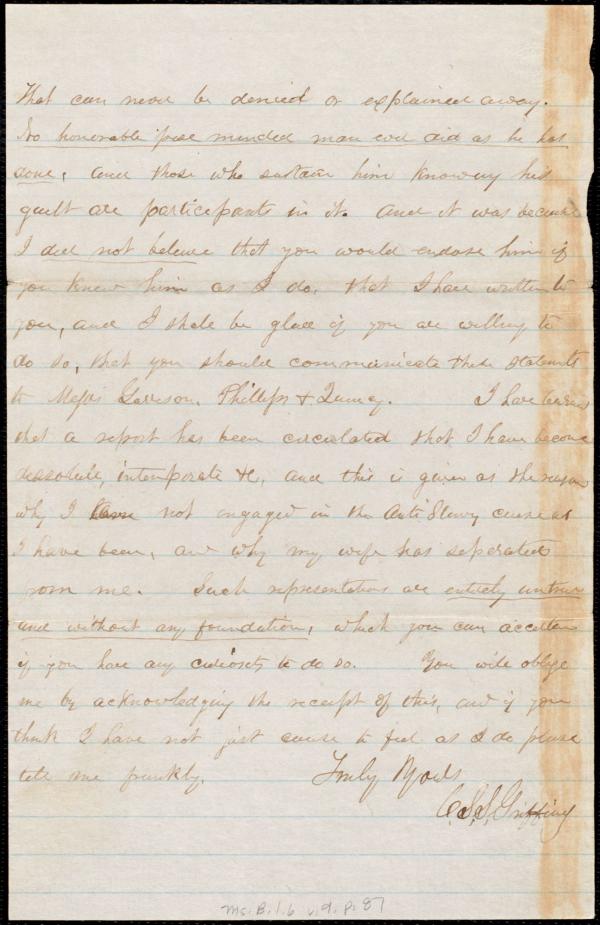 That can never be denied or explained away.
No honorable pure minded man ever did as he has
done, and those who sustain him knowing his
guilt are participants in it. And it was because
I did not believe that you would endose him if
you knew him as I do, that I have written to
you, and I shall be glad if you are willing to
do so, that you should communicate these statements
to Messrs Garrison, Phillips & Quincy. I have learned
that a report has been circulated that I have become
dissolute, intemperate &c, and this is given as the reason
why I am not engaged in the Anti Slavery cause as
I have been, and why my wife has seperated
from me. Such representations are entirely untrue
and without any foundation, which you can ascertain
if you have any curiosity to do so. You will oblige
me by acknowledging the receipt of this, and if you
think I have not just cause to feel as I do please
tell me frankly. Truly Yours
C.S.S. Griffing
Ms. B. 1. 6 v. 9. p. 87